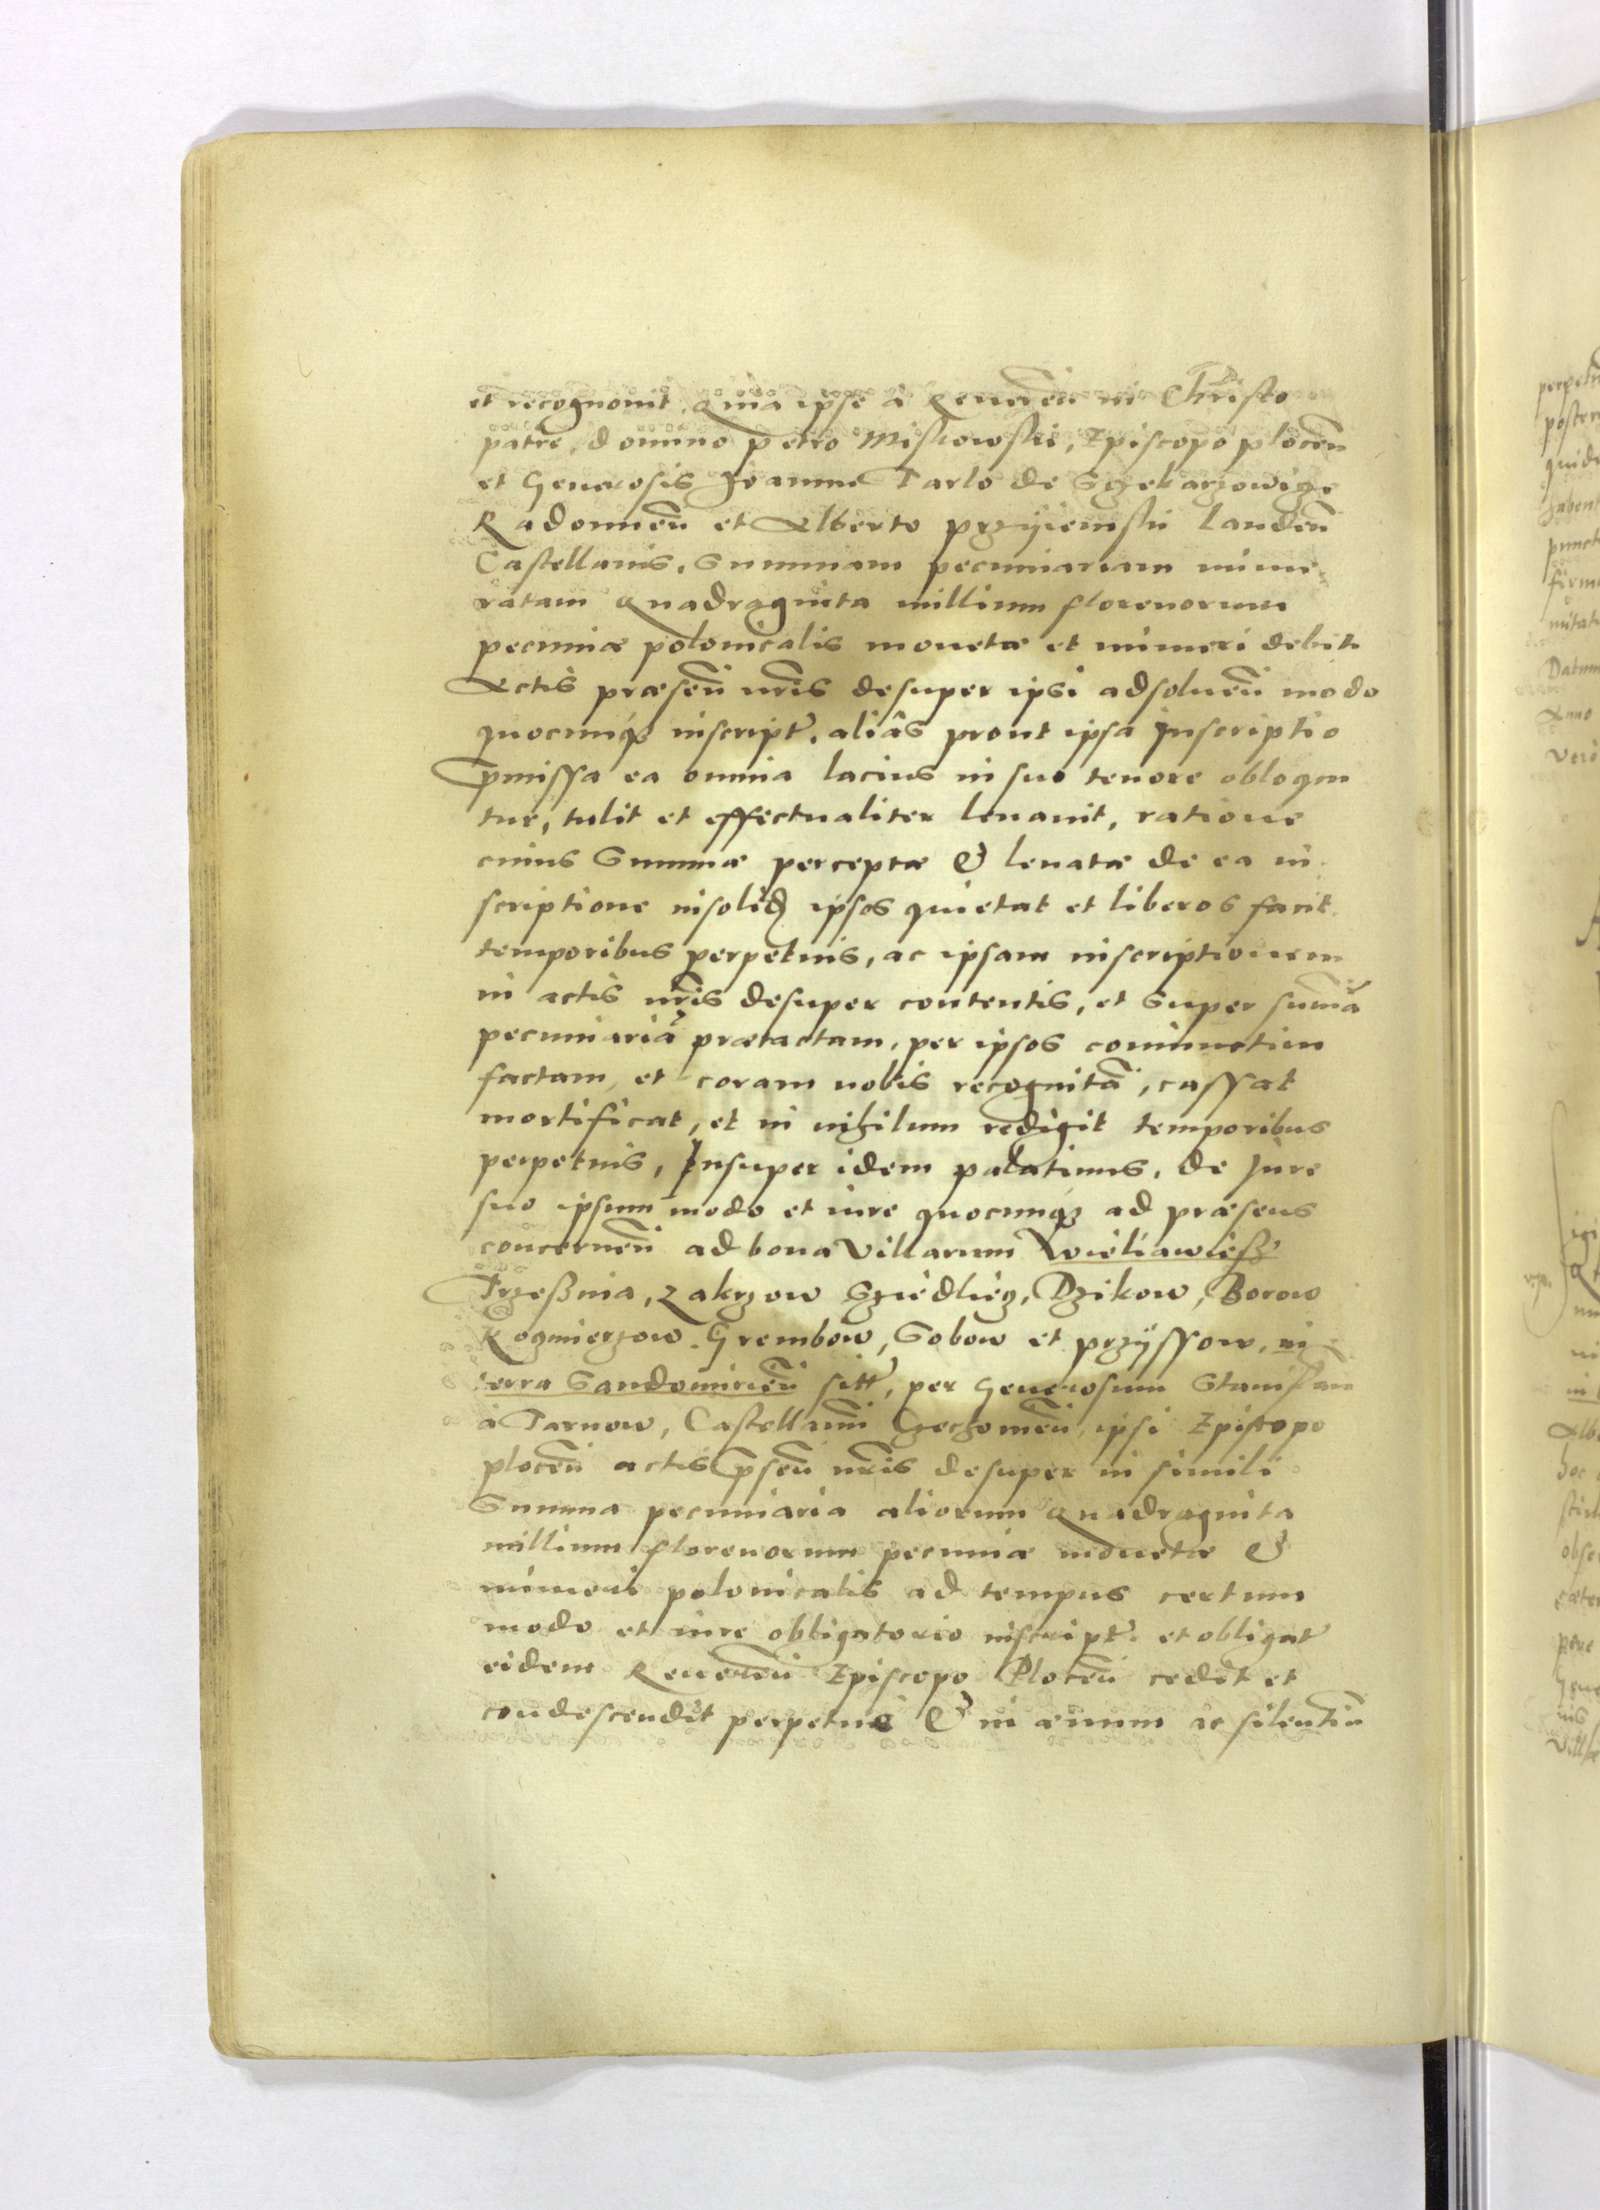 et recognouit, Quia ipse à Reueren in Christo
patre, domino Petro Miskowski, Episcopo plocen
et Generosis Joanne Tarlo de Szczekarzowicze
Radomien et Alberto Przyiemski Landen
Castellanis, Summam pecuniariam nume-
ratam Quadraginta millium florenorum
pecuniæ polonicalis monetæ et numeri debiti
Actis præsen nris desuper ipsi adsoluen modo
quocunq inscript, aliàs prout ipsa inscriptio
pmissa ea omnia lacius in suo tenore obloqui
tur, tulit et effectualiter leuauit, ratione
cuius Summæ perceptæ & leuatæ de ea in
scriptione insolid ipsos quietat et liberos facit
temporibus perpetuis, ac ipsam inscriptionem
in actis nris desuper contentis, et super sumã
pecuniariã prætactam, per ipsos coniunctim
factam, et coram nobis recognitã, cassat
mortificat, et in nihilum redigit temporibus
perpetuis, Insuper idem palatinus, de Jure
suo ipsum modo et iure quocunq ad præsens
concernen ad bona Villarum Wieliawiesz
Trzeßnia, Zakrzow Sziedliecz, Dzikow, Borow
Kozmierzow Grembow, Sobow et Przyssow, in
terra Sandomirien sitt, per Generosum Stanislaum
à Tarnow, Castellanũ Czechowien ipsi Episcopo
plocen actis psen nris desuper in simili
Summa pecuniaria aliorum Quadraginta
millium florenorum pecuniæ monetæ &
numeri polonicalis ad tempus certum
modo et iure obligatorio inscript et obligat
eidem Reueren Episcopo Plocen cedit et
condescendit perpetuè & in æuum ac silentiũ